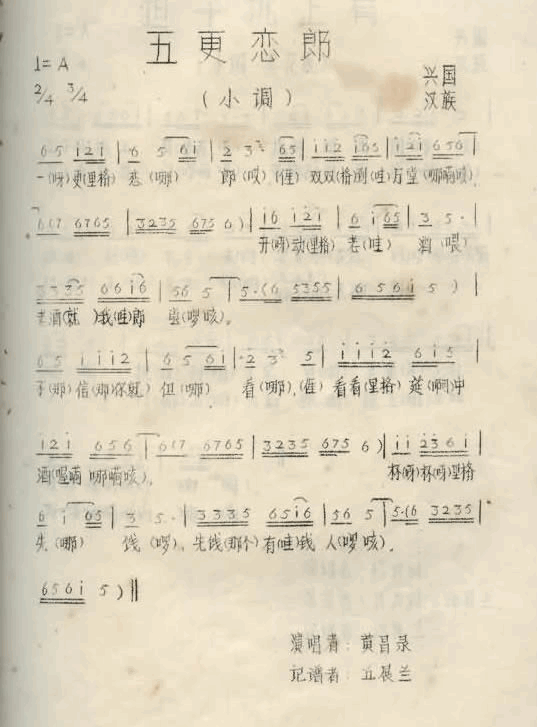 五更恋郎
1=A
2/4 3/4
（小调）
兴国
汉族
6 5 i 2 i | 6 5 6 i | 2 3 2 6 5 | i i 2 i 6 5 | i 2 i 6 5 6
一(呀)更(里格) 恋(哪) 郎(哎)(倕) 双双(格)到(哇)厅堂(哪嗬咳)
6 (7 6 7 6 5 | 3 2 3 5 6 7 5 6 ) | i 6 i 2 i | 6 i 6 5 | 3 5 · |
开(呀)动(里格) 老(哇) 酒(喂)
3 3 3 5 6 6 i 6 | 5 6 5 | 5 · (6 5 3 5 5 | 6 5 6 i 5 ) |
老酒(就)我(哇)郎 (啰咳)。
6 5 i i i 2 | 6 5 6 i | 2 3 5 | i i i 2 6 i 5 |
(那)信(那)你就 但(哪) 看(哪),(倕) 看看(里格)筵(啊)中
i 2 i 6 5 6 | 6 (7 6 7 6 5 | 3 2 3 5 6 7 5 6 ) | i i 2 3 6 i |
酒(喔嗬 哪嗬咳)。 杯(呀)杯(呀)里格
6 i 6 5 | 3 5 · | 3 3 3 5 6 5 i 6 | 5 6 5 | 5 · (6 3 2 3 5 |
先(哪) 饯(啰), 先饯(那个)有(哇)钱 人(啰咳)。
6 5 6 i 5 ) ‖
演唱者：黄昌录
记谱者：丘展兰